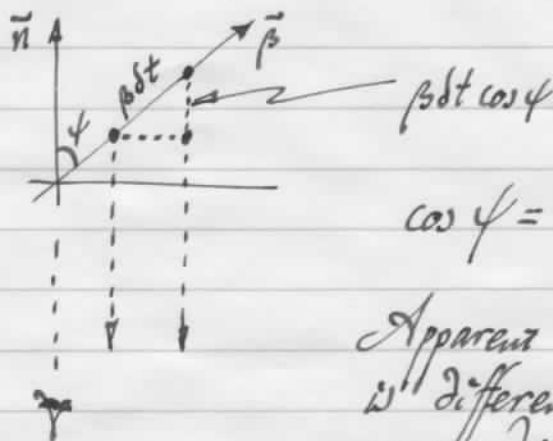 n⃗
β⃗
βδt
ψ
βδt cos ψ
cos ψ =
Apparent
is differen